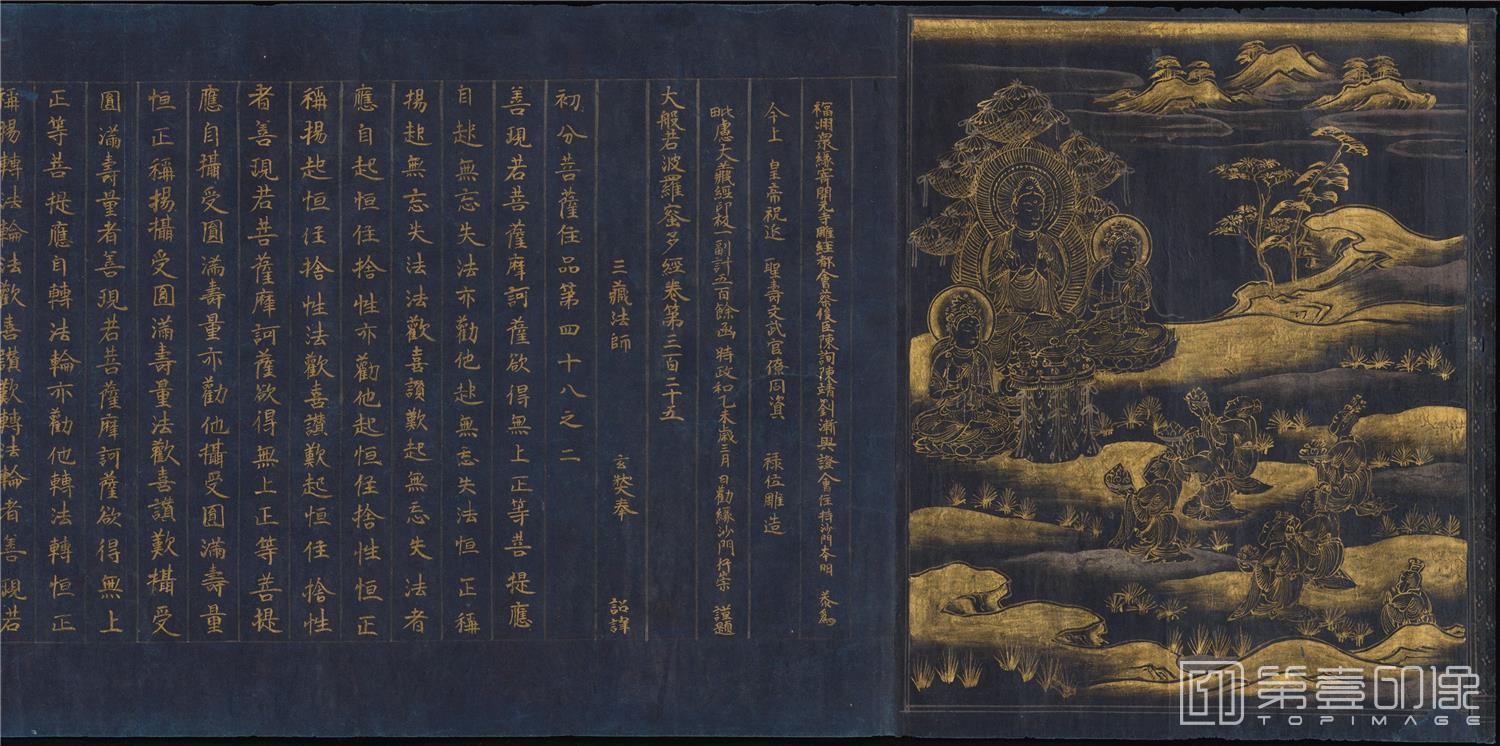 福州衆緣寄開元寺雕經都會蔡俊臣陳詢陳靖劉漸與證會住持沙門本明 恭為
今上 皇帝祝延 聖壽文武官僚同資 祿位雕造
毗盧大藏經印板一副計五百餘函 時政和乙未歲三月 日勸緣沙門行崇 謹題
大般若波羅蜜多經卷第三百二十五
三藏法師 玄奘奉 詔譯
初分菩薩住品第四十八之二
善現若菩薩摩訶薩欲得無上正等菩提應
自起無忘失法亦勸他起無忘失法恒正稱
揚起無忘失法法歡喜讚歎起無忘失法者
應自起恒住捨性亦勸他起恒住捨性恒正
稱揚起恒住捨性法歡喜讚歎起恒住捨性
者善現若菩薩摩訶薩欲得無上正等菩提
應自攝受圓滿壽量亦勸他攝受圓滿壽量
恒正稱揚攝受圓滿壽量法歡喜讚歎攝受
圓滿壽量者善現若菩薩摩訶薩欲得無上
正等菩提應自轉法輪亦勸他轉法轉恒正
稱揚轉法輪法歡喜讚歎轉法輪者善現若
第壹印像
TOPIMAGE